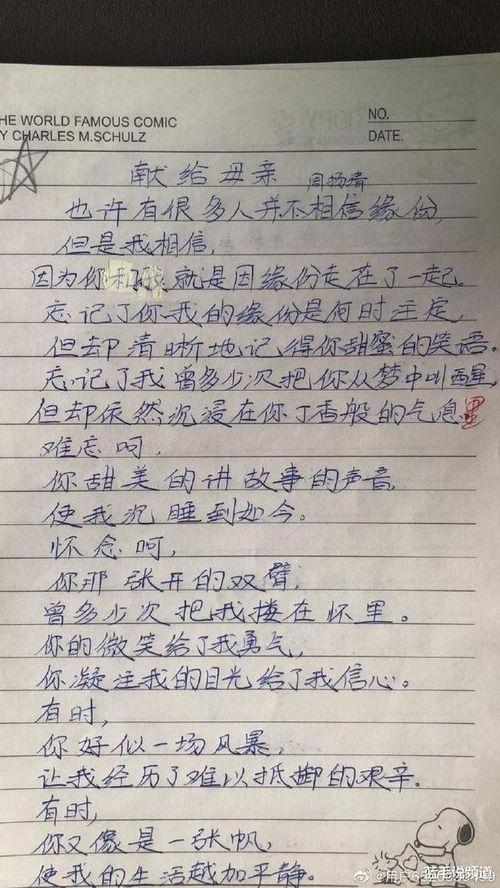 THE WORLD FAMOUS COMIC
Y CHARLES M.SCHULZ
NO.
DATE.
献给母亲 周扬清
也许有很多人并不相信缘份,
但是我相信,
因为你和我就是因缘份走在了一起。
忘记了你我的缘份是何时注定,
但却清晰地记得你甜蜜的笑语。
忘记了我曾多少次把你从梦中叫醒,
但却依然沉浸在你丁香般的气息里
难忘呵,
你甜美的讲故事的声音,
使我沉睡到如今。
怀念呵,
你那张开的双臂,
曾多少次把我搂在怀里。
你的微笑给了我勇气,
你凝注我的目光给了我信心。
有时,
你好似一场风暴,
让我经历了难以抵御的艰辛.
有时,
你又像是一张帆,
使我的生活越加平静。
蓝毛说频道